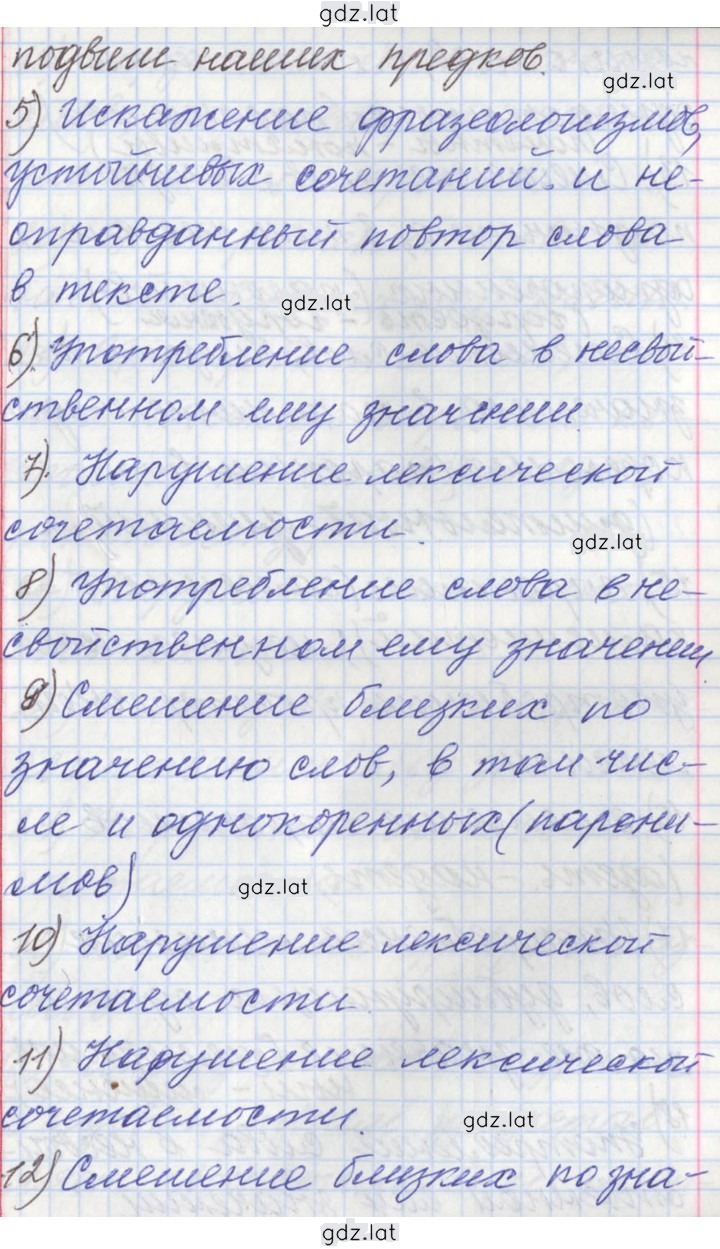 gdz.lat
подвиги наших предков.
gdz.lat
5) Искажение фразеологизмов,
устойчивых сочетаний. и не-
оправданный повтор слова
в тексте.
gdz.lat
6). Употребление слова в несвой-
ственном ему значении.
7). Нарушение лексической
сочетаемости.
gdz.lat
8) Употребление слова в не-
свойственном ему значении
9) Смешение близких по
значению слов, в том чис-
ле и однокоренных (парони-
мов)
gdz.lat
10) Нарушение лексической
сочетаемости.
11) Нарушение лексической
сочетаемости.
gdz.lat
12) Смешение близких по зна-
gdz.lat